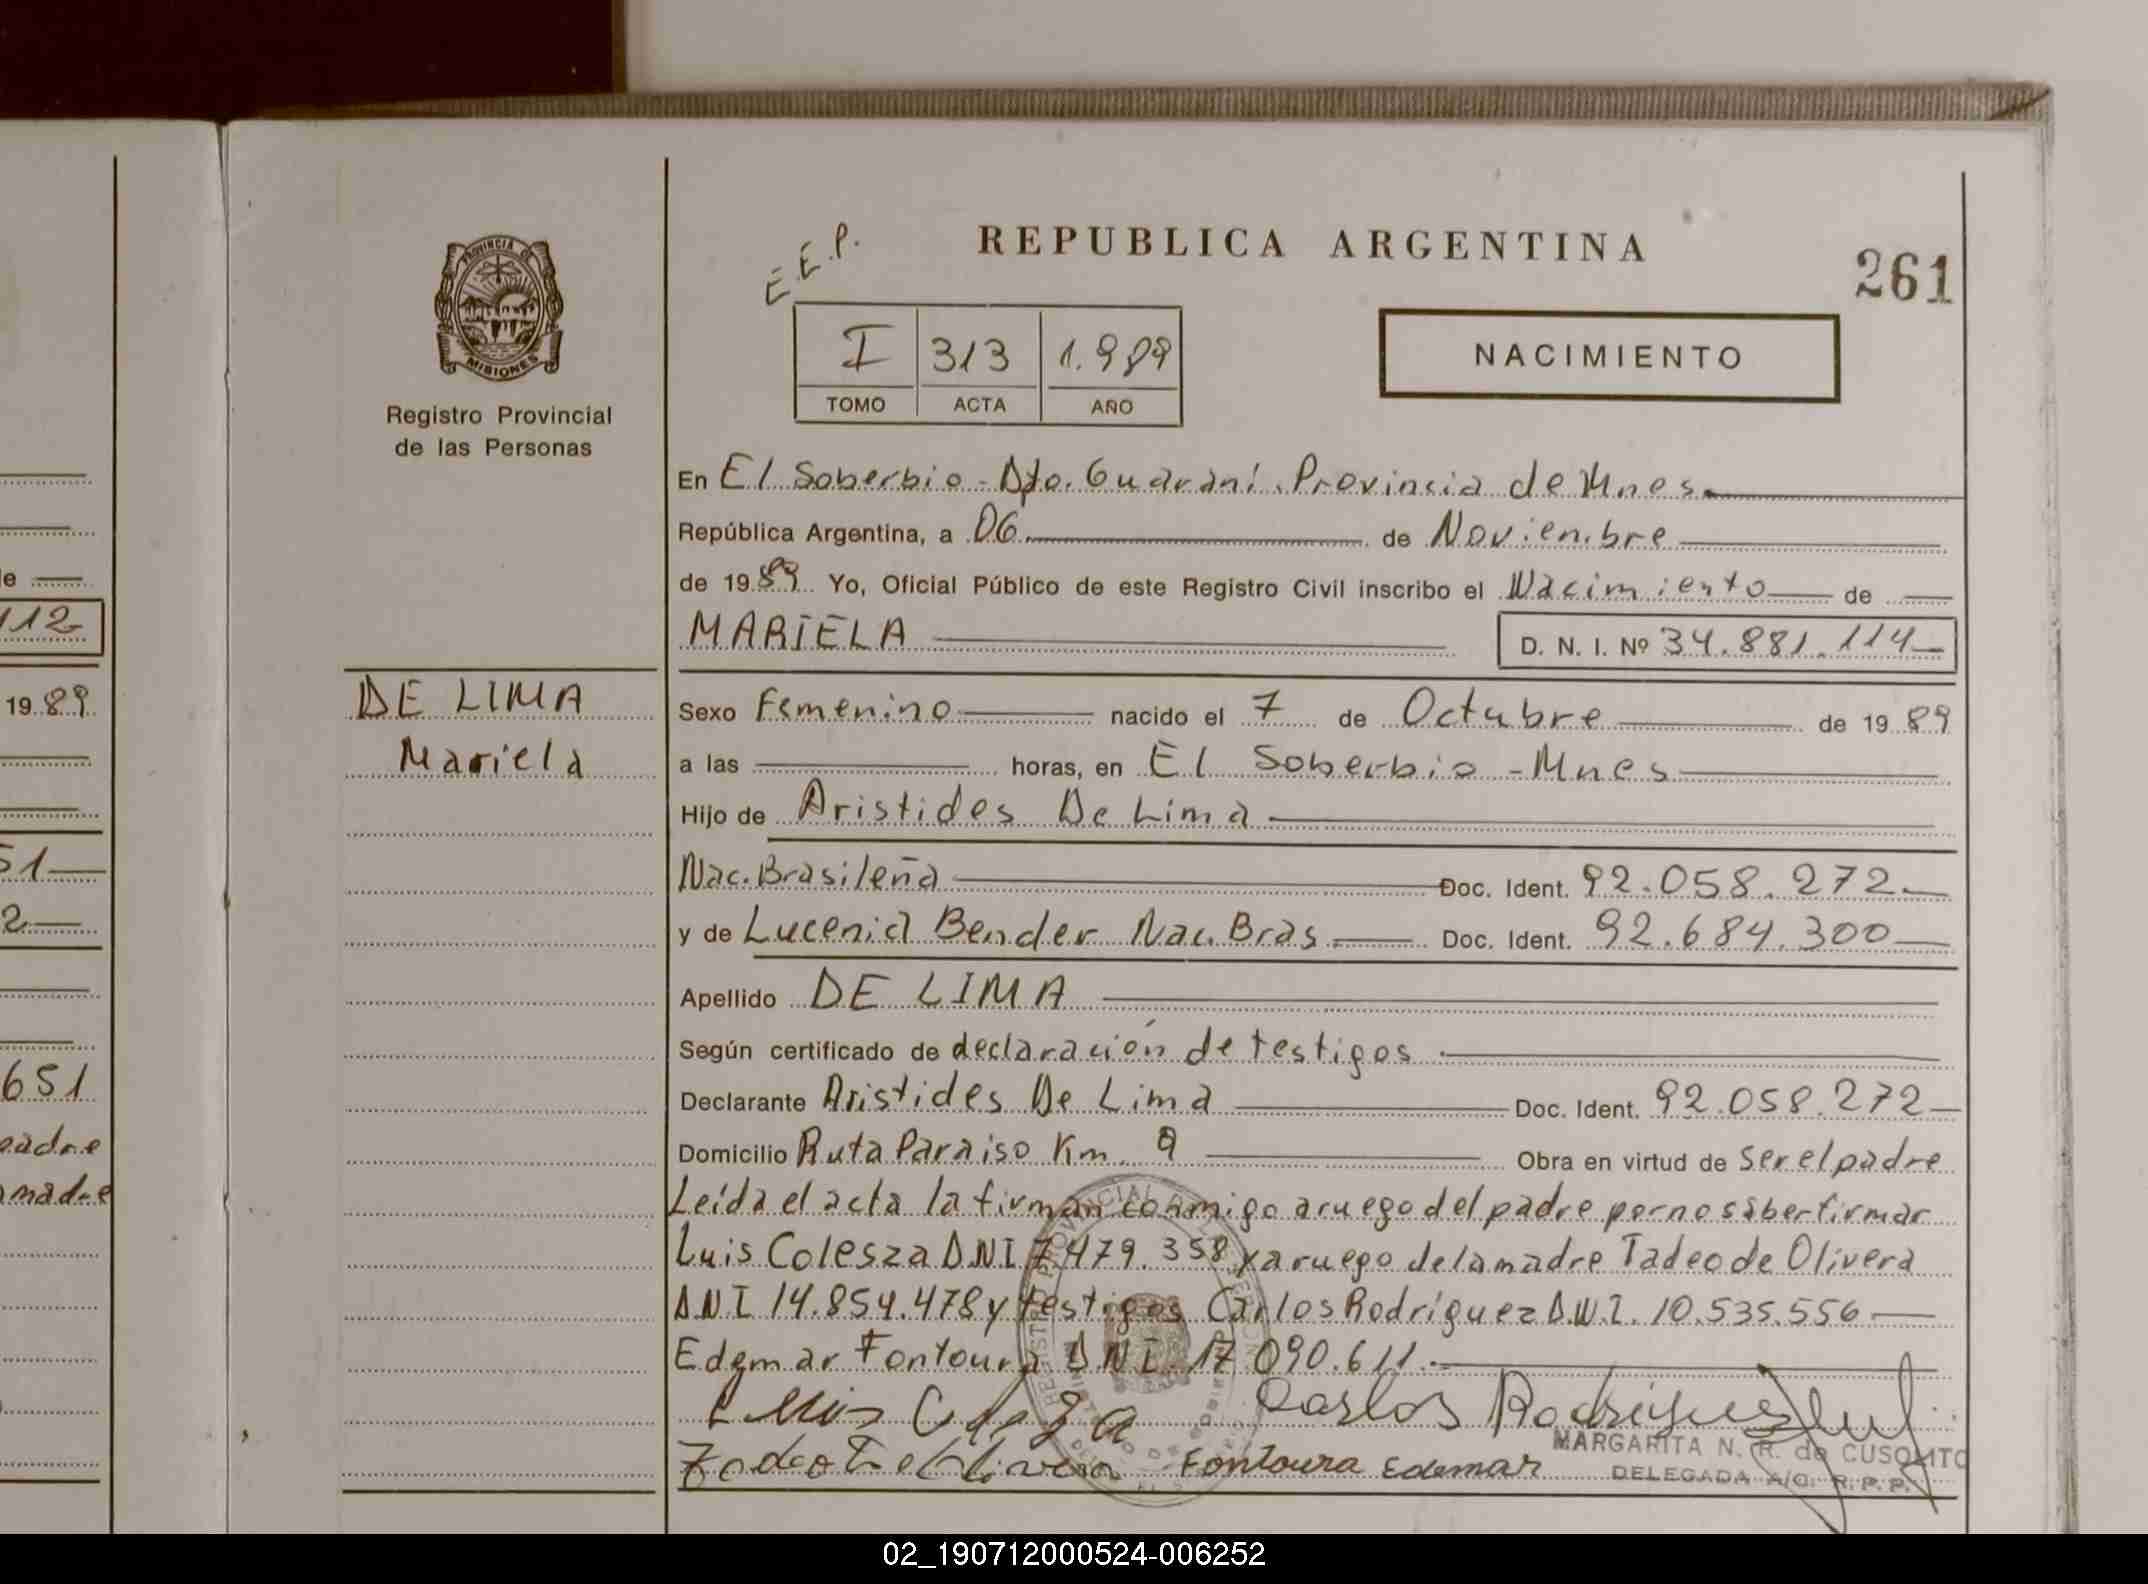 112
1989
51
2
651
padre
madre
PROVINCIA DE
MISIONES
Registro Provincial
de las Personas
DE LIMA
Mariela
E.E.P.
REPUBLICA ARGENTINA
261
I 313 1.989
TOMO ACTA AÑO
NACIMIENTO
En El Soberbio - Dto. Guaraní. Provincia de Mnes.
República Argentina, a 06 de Noviembre
de 1989 Yo, Oficial Público de este Registro Civil inscribo el Nacimiento de
MARIELA D. N. I. Nº 34.881.114
Sexo Femenino nacido el 7 de Octubre de 1989
a las horas, en El Soberbio - Mnes
Hijo de Aristides De Lima
Nac. Brasileña Doc. Ident. 92.058.272
y de Lucenia Bender Nac. Bras. Doc. Ident. 92.684.300
Apellido DE LIMA
Según certificado de declaración de testigos
Declarante Aristides De Lima Doc. Ident. 92.058.272
Domicilio Ruta Paraiso Km. 9 Obra en virtud de ser el padre
Leída el acta la firman conmigo a ruego del padre por no saber firmar
Luis Colesza DNI 7.479.358 y a ruego de la madre Tadeo de Olivera
D.N.I 14.854.478 y testigos Carlos Rodríguez D.N.I. 10.535.556
Edgmar Fontoura D.N.I. 17.090.611.
Luis
Carlos Rodríguez
Fontoura Edemar
MARGARITA N. R. de CUSQUITO
DELEGADA A/C. R. P. P.
02_190712000524-006252